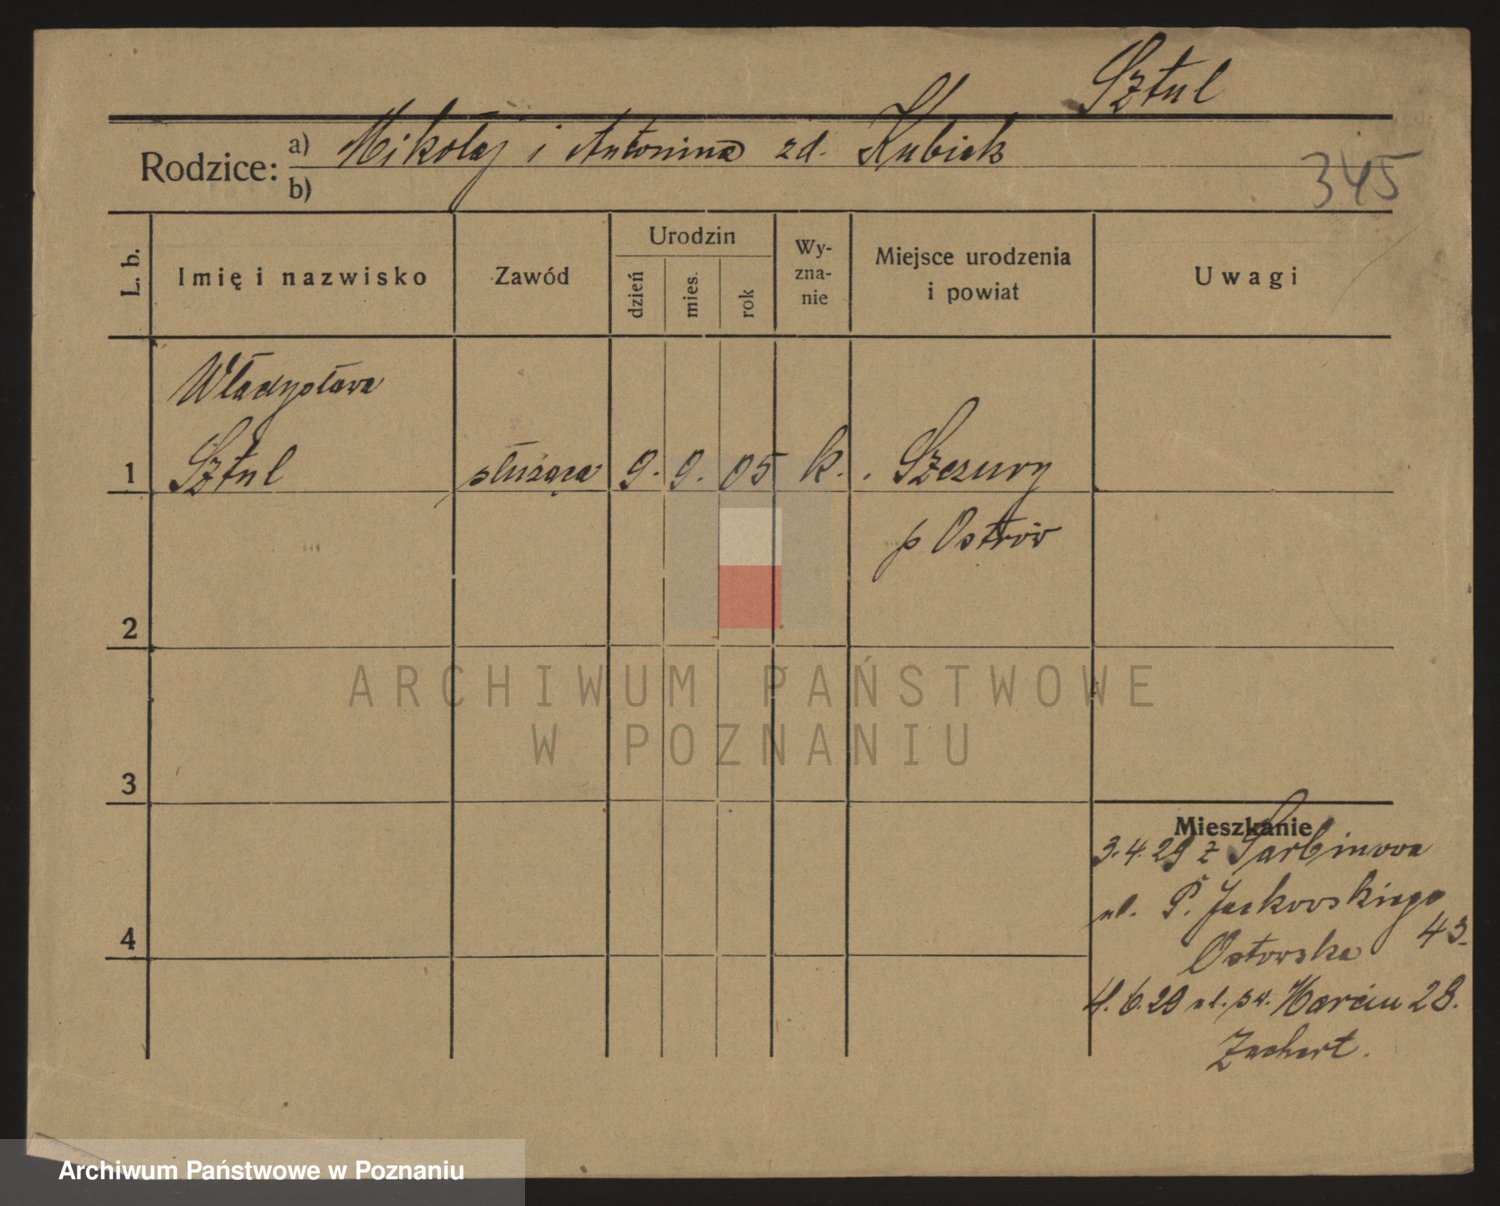 Sztul
Rodzice: a) Mikołaj i Antonina zd. Kubiak
b)
345
L. b. Imię i nazwisko Zawód Urodzin dzień mies. rok Wy-zna-nie Miejsce urodzenia i powiat Uwagi
Władysława
1 Sztul służąca 9. 9. 05 k. Szczury
p Ostrów
2
ARCHIWUM PAŃSTWOWE
W POZNANIU
3
Mieszkanie
3.4.29 z Sarbinowa
ul. P. Jackowskiego 43
4.6.29 ul. św. Marcin 28.
Zachert.
4
Archiwum Państwowe w Poznaniu